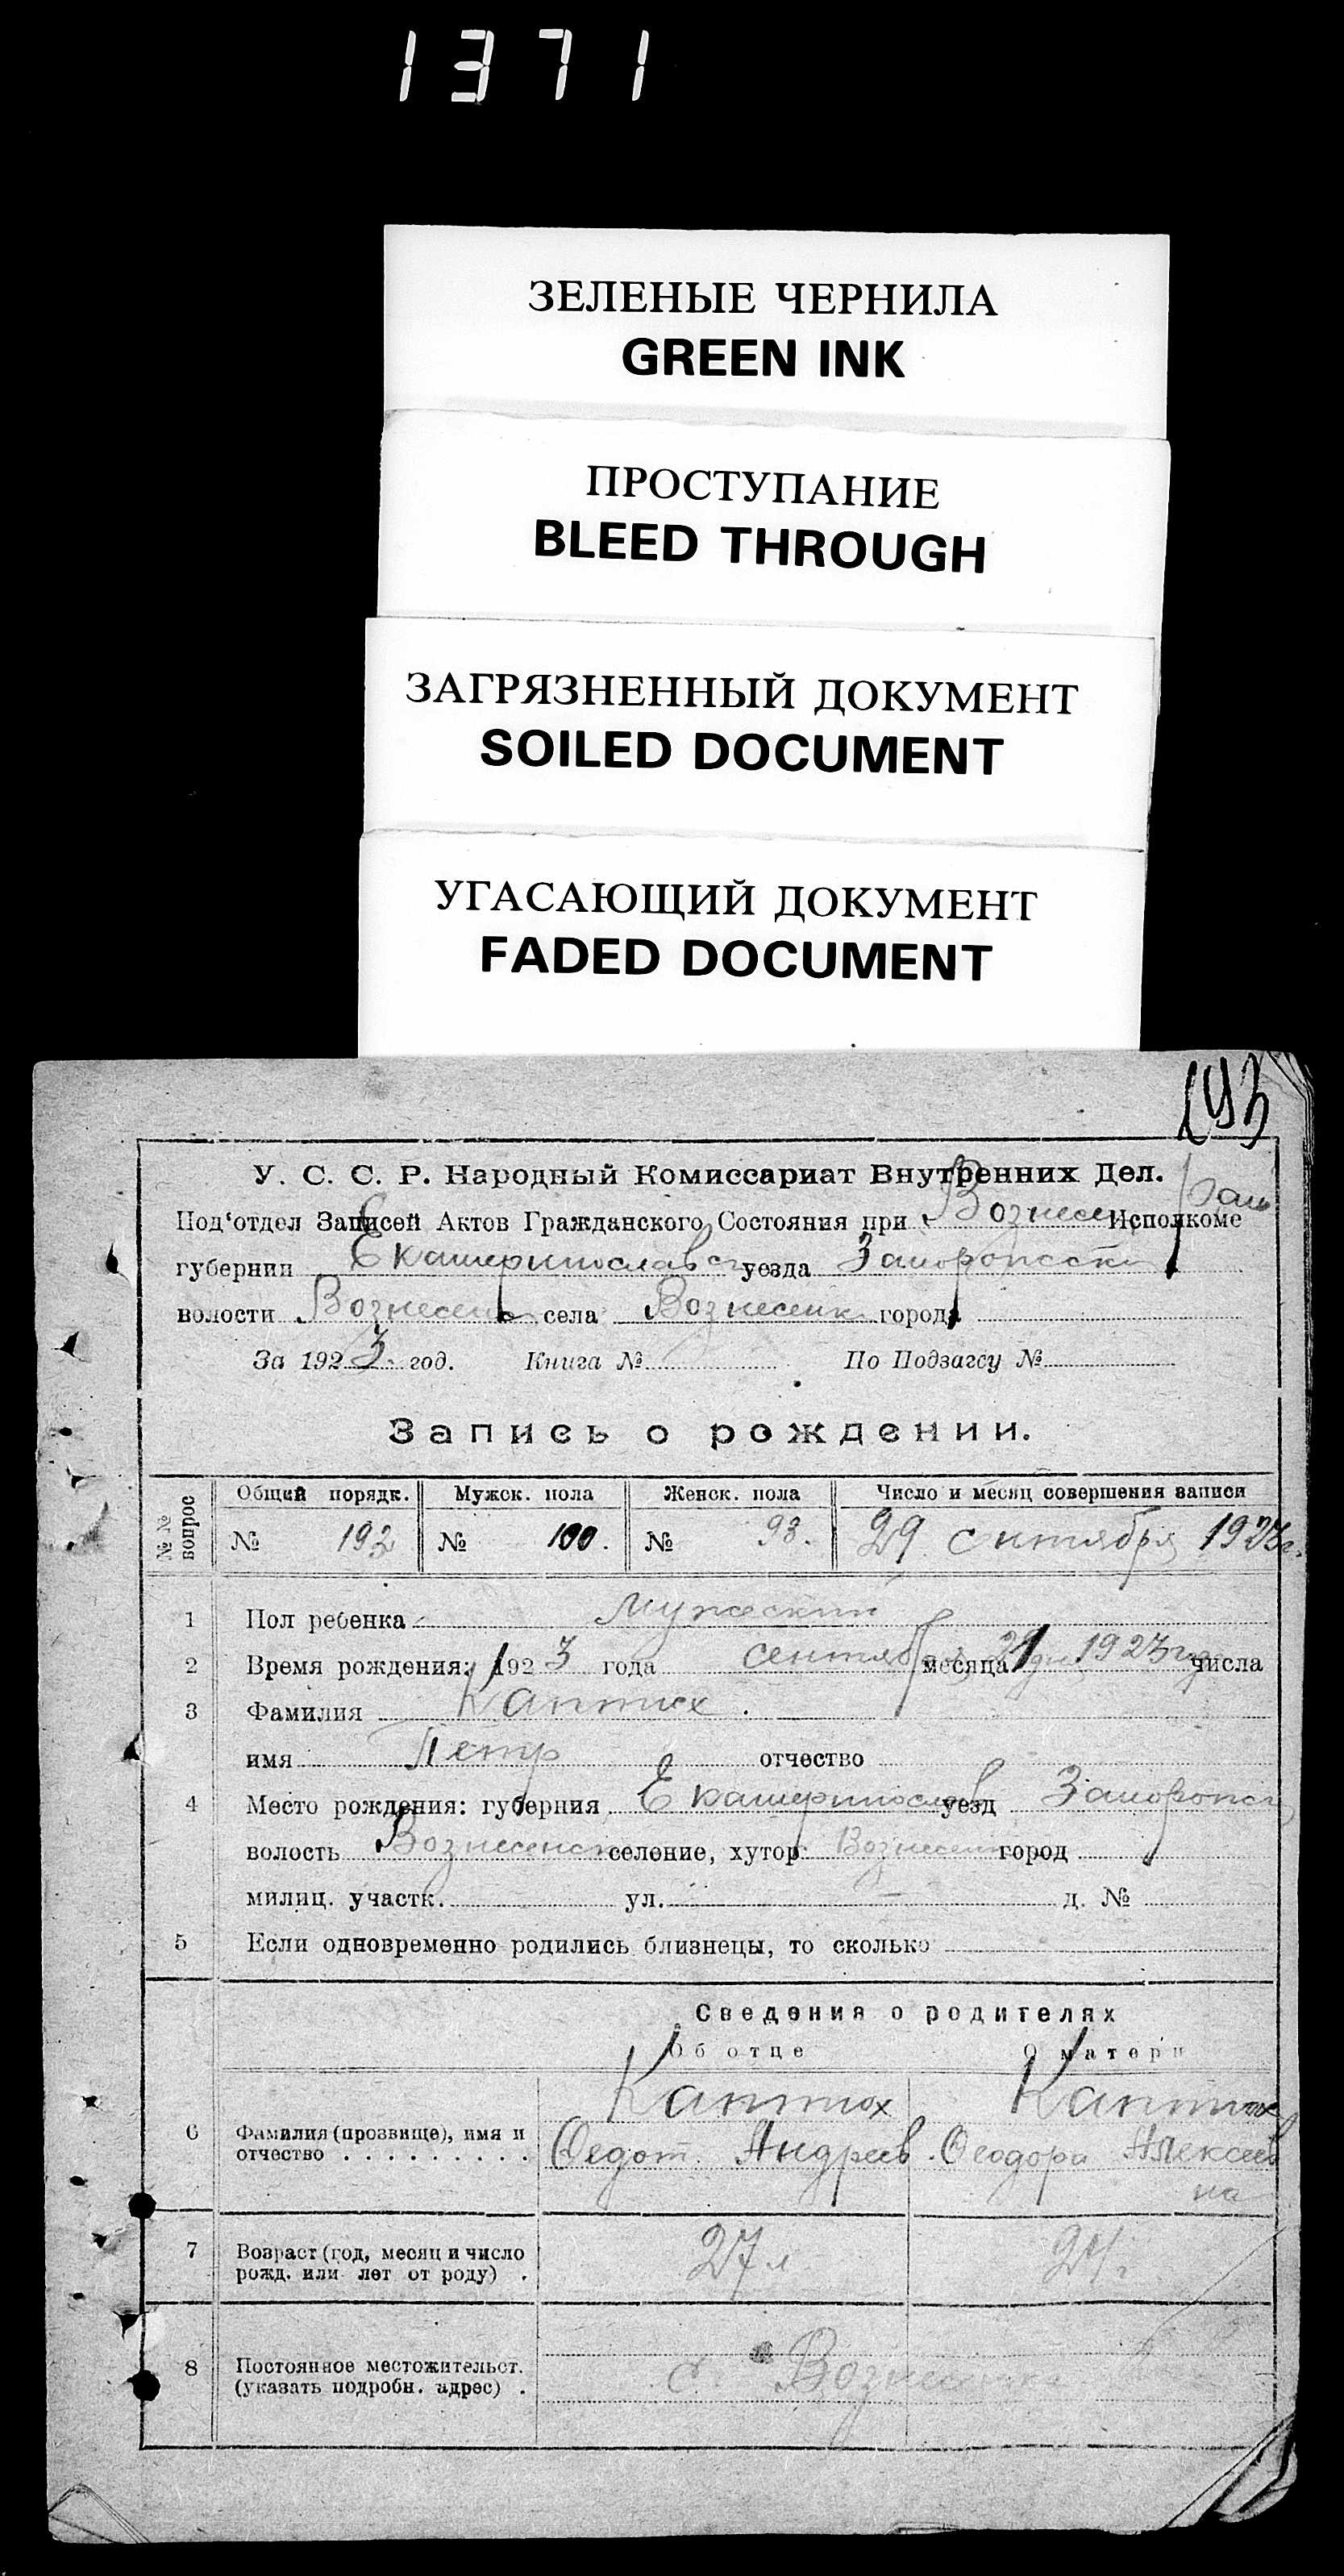 1371
ЗЕЛЕНЫЕ ЧЕРНИЛА
GREEN INK
ПРОСТУПАНИЕ
BLEED THROUGH
ЗАГРЯЗНЕННЫЙ ДОКУМЕНТ
SOILED DOCUMENT
УГАСАЮЩИЙ ДОКУМЕНТ
FADED DOCUMENT
193
У. С. С. Р. Народный Комиссариат Внутренних Дел.
Под'отдел Записей Актов Гражданского Состояния при Вознесен Исполкоме
губернии Екатеринославс уезда Запорожск
волости Вознесенс села Вознесенк города
За 1923 год. Книга № По Подзагсу №
Запись о рождении.
№№ вопрос Общий порядк. Мужск. пола Женск. пола Число и месяц совершения записи
№ 192 № 100. № 93. 29 сентября 1923 г.
1 Пол ребенка мужеский
2 Время рождения: 1923 года сентября месяца 1923 числа
3 Фамилия Каптюх
имя Петр отчество
4 Место рождения: губерния Екатеринослав уезд Запорожс
волость Вознесенск селение, хутор Вознесенк город
милиц. участк. ул. — д. №
5 Если одновременно родились близнецы, то сколько
Сведения о родителях
Об отце О матери
Каптюх Каптюх
6 Фамилия (прозвище), имя и Федот Андреев Феодора Алексеев
отчество на
7 Возраст (год, месяц и число 27 л 24 г
рожд. или лет от роду)
8 Постоянное местожительст. с. Вознесенка
(указать подробн. адрес)